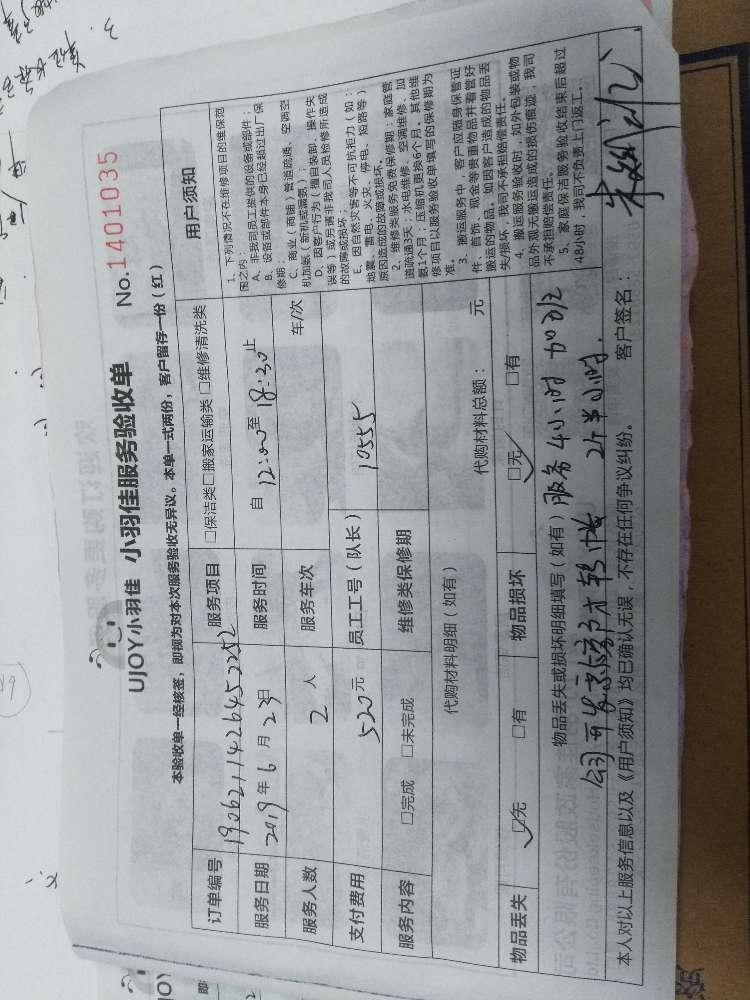 UJOY小羽佳 小羽佳服务验收单 No.1401035
本验收单一经核签，即视为对本次服务验收无异议。本单一式两份，客户留存一份（红）
订单编号 1906211426452252 服务项目 □保洁类□搬家运输类 □维修清洗类
服务日期 2019年6月23日 服务时间 自 12:00至18:30止
服务人数 2人 服务车次 车/次
支付费用 520元 员工工号（队长） 10555
服务内容 □完成 □未完成 维修类保修期
代购材料明细（如有） 代购材料总额： 元
物品丢失 □无 □有 物品损坏 □无 □有
物品丢失或损坏明细填写（如有） 服务4小时 加班
2个半小时.
本人对以上服务信息以及《用户须知》均已确认无误，不存在任何争议纠纷。 客户签名：
用户须知
1、下列情况不在维修项目的维保范
围之内：
A、非我司员工提供的设备或部件；
B、设备或部件本身已经超过出厂保
修期；
C、商业（商铺）管道疏通、空调空
机加氨（新机或漏氨）；
D、因客户行为（擅自装卸、操作失
误等）或另请非我司人员检修所造成
的故障或损坏；
E、因自然灾害等不可抗拒力（如：
地震、雷电、火灾、停电、短路等）
原因造成的故障或损坏。
2、维修类服务免费保修期：家庭管
道疏通3天；水电维修、空调维修、加
氨1个月；压缩机更换6个月。其他维
修项目以服务验收单填写的保修期为
准。
3、搬运服务中，客户应随身保管证
件、首饰、现金等贵重物品并看管好
搬运的物品，如因客户造成的物品丢
失/损坏，我司不承担赔偿责任。
4、搬运服务验收时，如外包装或物
品外观无搬运造成的损伤痕迹，我司
不承担赔偿责任。
5、家庭保洁服务验收结束后超过
48小时，我司不负责上门返工。